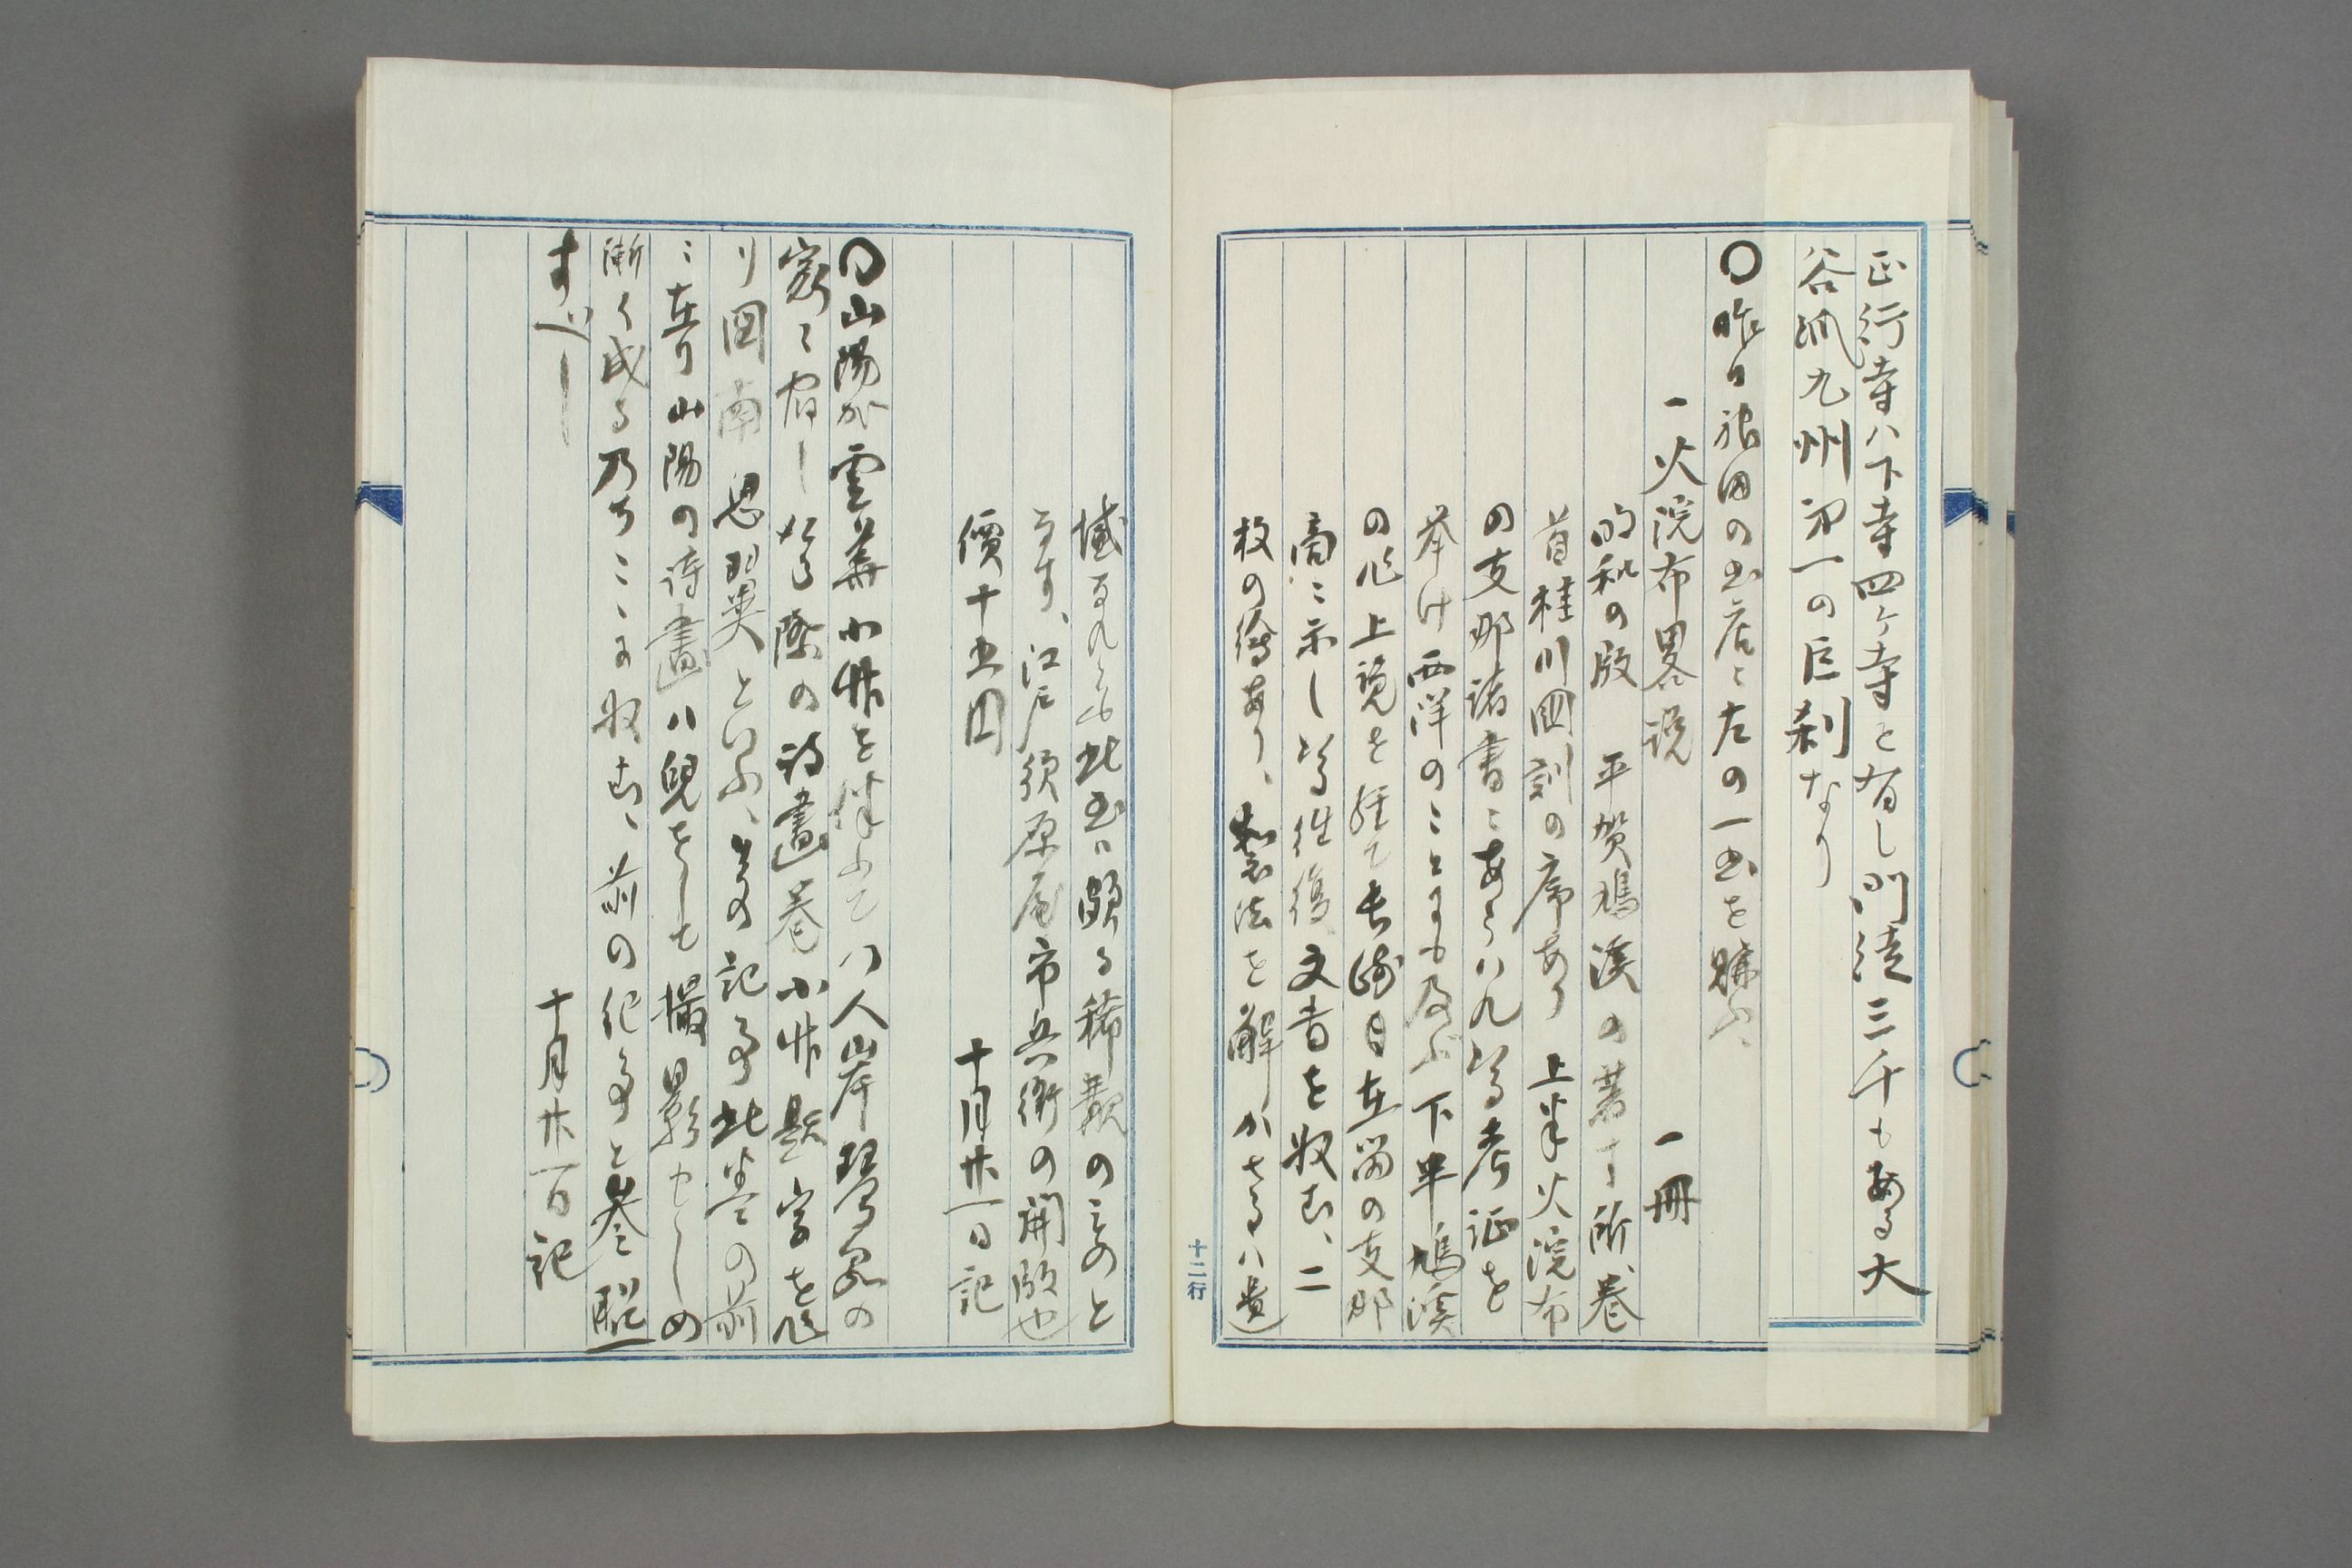 正行寺ハ下寺四ケ寺を有し門徒三千もある大
谷派九州第一の巨刹なり
〇昨日神田の書店ニ左の一書を購ふ、
一火浣布畧説　一冊
明和の段　平賀鳩溪の著す所、巻
首桂川国訓の序あり　上半火浣布
の支那諸書ニあらハれ居る考証を
挙け西洋のことにも及ぶ　下半鳩溪
の作上覧を経て長崎日在留の支那
商ニ示し其往復文書を収む、二
枚の絵あり、製法を解かさるハ遺
十二行
憾なれとも此書ハ頗る稀覯のものと
なす、江戸須原屋市兵衛の開版也
價十五円
十月廿一日記
〇山陽が雲華小竹を伴ふて八人山岸琴家の
家ニ宿し 其際の詩畫巻小竹題字を作
り図南思翼といふ、其の記事此巻の前
ニ在り山陽の詩畫ハ兒をしも撮影せしめ
漸く成る乃ちこゝに収む、前の記事と参照
すべし
十月廿一日記